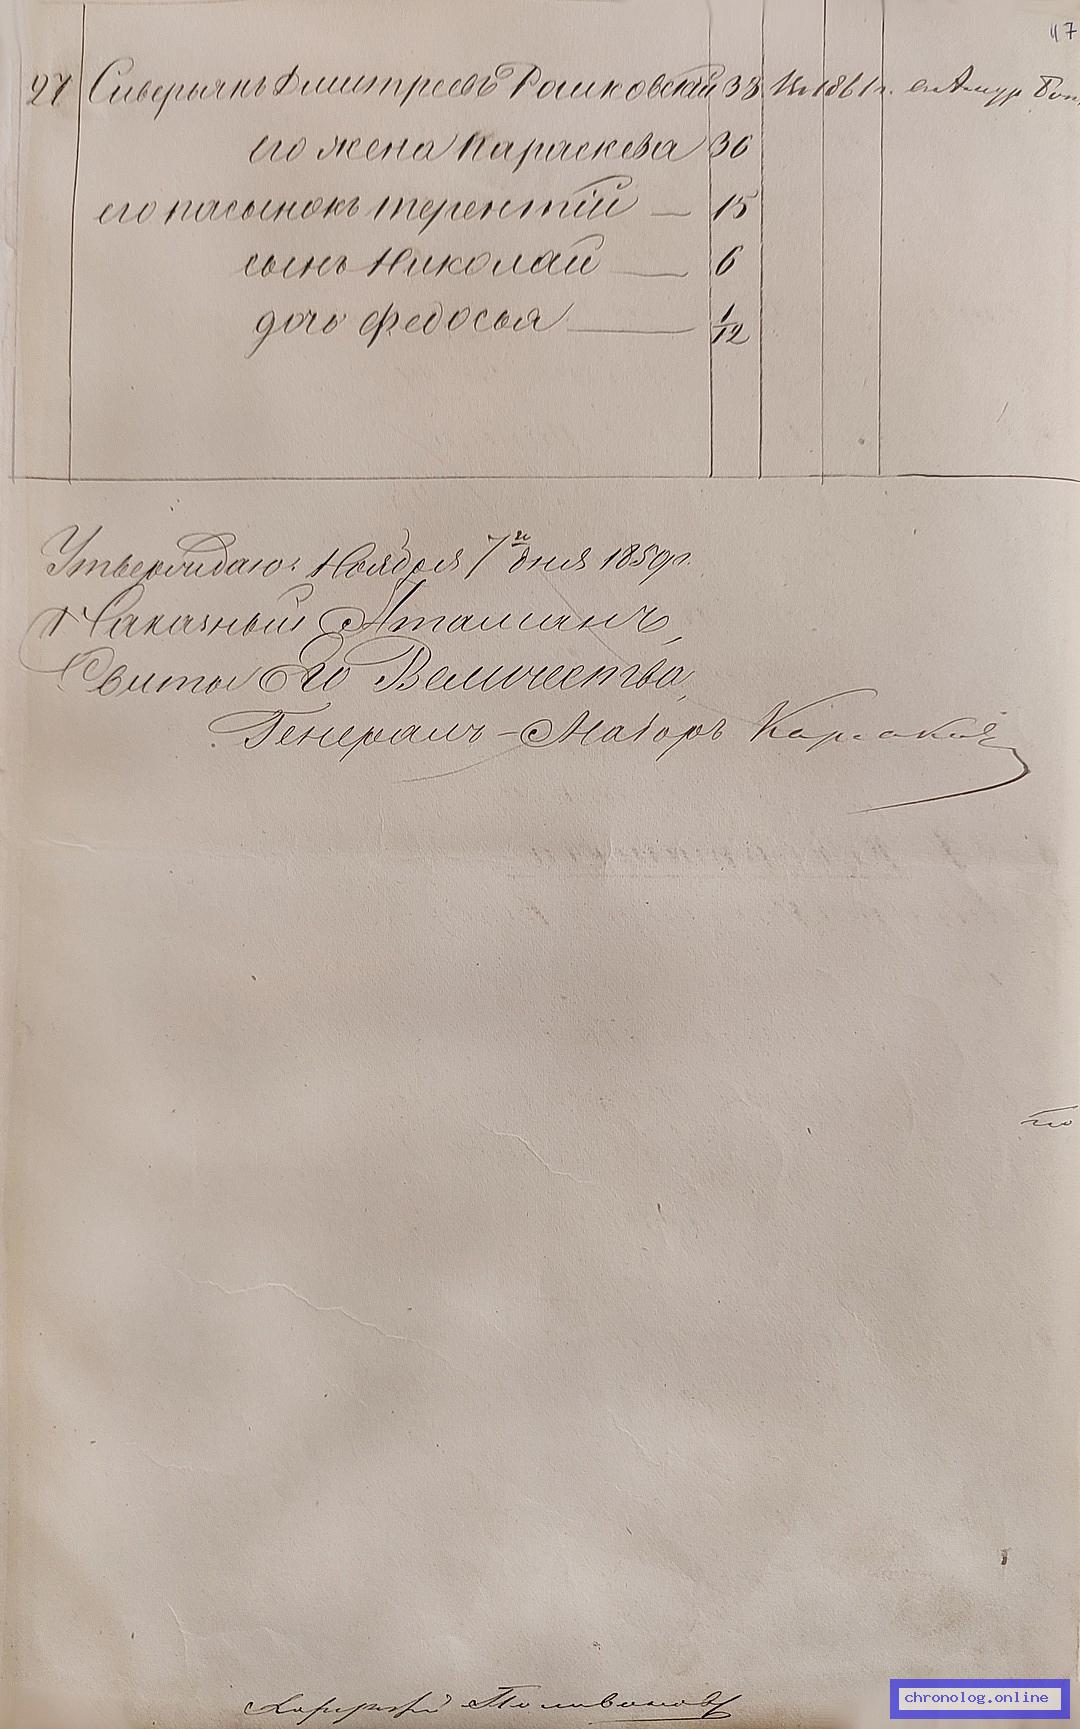 47
27 Сиверьянъ Дмитреевъ Рашковскій 38 1861 г. Амур
его жена Параскева 30
его пасынокъ терентій — 15
сынъ Николай — 6
дочь федосья — 1/12
Утверждаю: Ноября 7го дня 1859 г.
Наказный Атаманъ,
Свиты Его Величества,
Генералъ-Маіоръ Карсаковъ
по
Хорунжій Поливановъ
chronolog.online